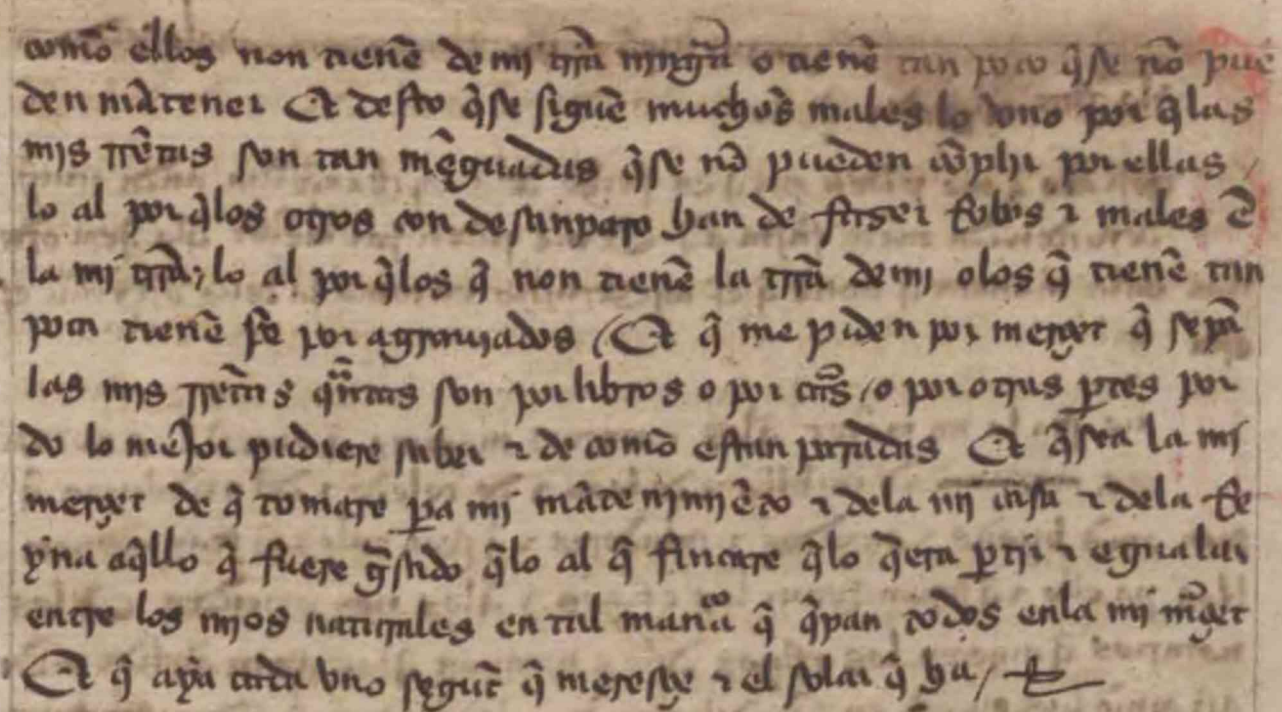 comō ellos non tienē de mi trrã ningũa o tienē tan poco q̃ se nõ pue
den mãtener Et desto q̃ se siguē muchos males lo vno por q̃ las
mis rrẽtas son tan mẽguadas q̃ se nõ pueden cõplir por ellas /
lo al por q̃ los otros con desanparo han de faser rrobos τ males ẽ
la mi trrã / lo al por q̃ los q̃ non tienē la trrã de mi o los q̃ tienē tan
poca tienē se por agrauiados / Et q̃ me piden por merçet q̃ sepã
las mis rrẽtas q̃ntas son por libros o por ctãs / o por otras ptes por
do lo mejor pudiere saber τ de como estan partidas Et q̃ sea la mi
merçet de q̃ tomare pa mi mãtenimiẽto τ dela mi casa τ dela Re
yna aq̃llo q̃ fuere g̃sado q̃ lo al q̃ fincare q̃ lo q̃era ptir τ egualar
entre los mios naturales en tal manã q̃ q̃pan todos enla mi m̃çet
Et q̃ aya cada vno segũt q̃ meresçe τ el solar q̃ ha /